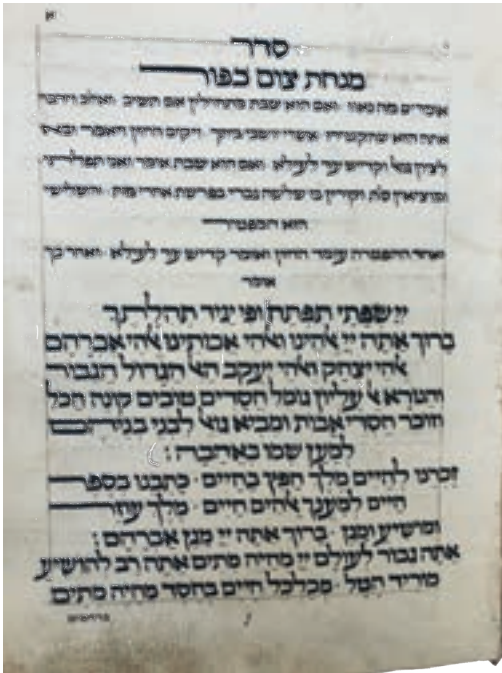 סדר
מנחת צום כפור
אומרים מה נאוו ואם הוא שבת מתחילין אם תשיב
אתה הוא שהקטירו אשרי יושבי ביתך ויקום החזן ויאמר ובא
לציון וקדיש עד לעילא ואם הוא שבת אומר ואני תפלתי
ומוציאין ס"ת וקורין בו שלשה גברי בפרשת אחרי מות והשלישי
הוא המפטיר
ואחר ההפטרה עומד החזן ואומר קדיש עד לעילא ואחר כך
אומר
יי שפתי תפתח ופי יגיד תהלתך
ברוך אתה יי אלהינו ואלהי אבותינו אלהי אברהם
אלהי יצחק ואלהי יעקב האל הגדול הגבור
והנורא אל עליון גומל חסדים טובים קונה הכל
זוכר חסדי אבות ומביא גואל לבני בניהם
למען שמו באהבה:
זכרנו לחיים מלך חפץ בחיים כתבנו בספר
חיים למענך אלהים חיים מלך עוזר
ומושיע ומגן ברוך אתה יי מגן אברהם:
אתה גבור לעולם יי מחיה מתים אתה רב להושיע
מוריד הטל מכלכל חיים בחסד מחיה מתים
ברחמים